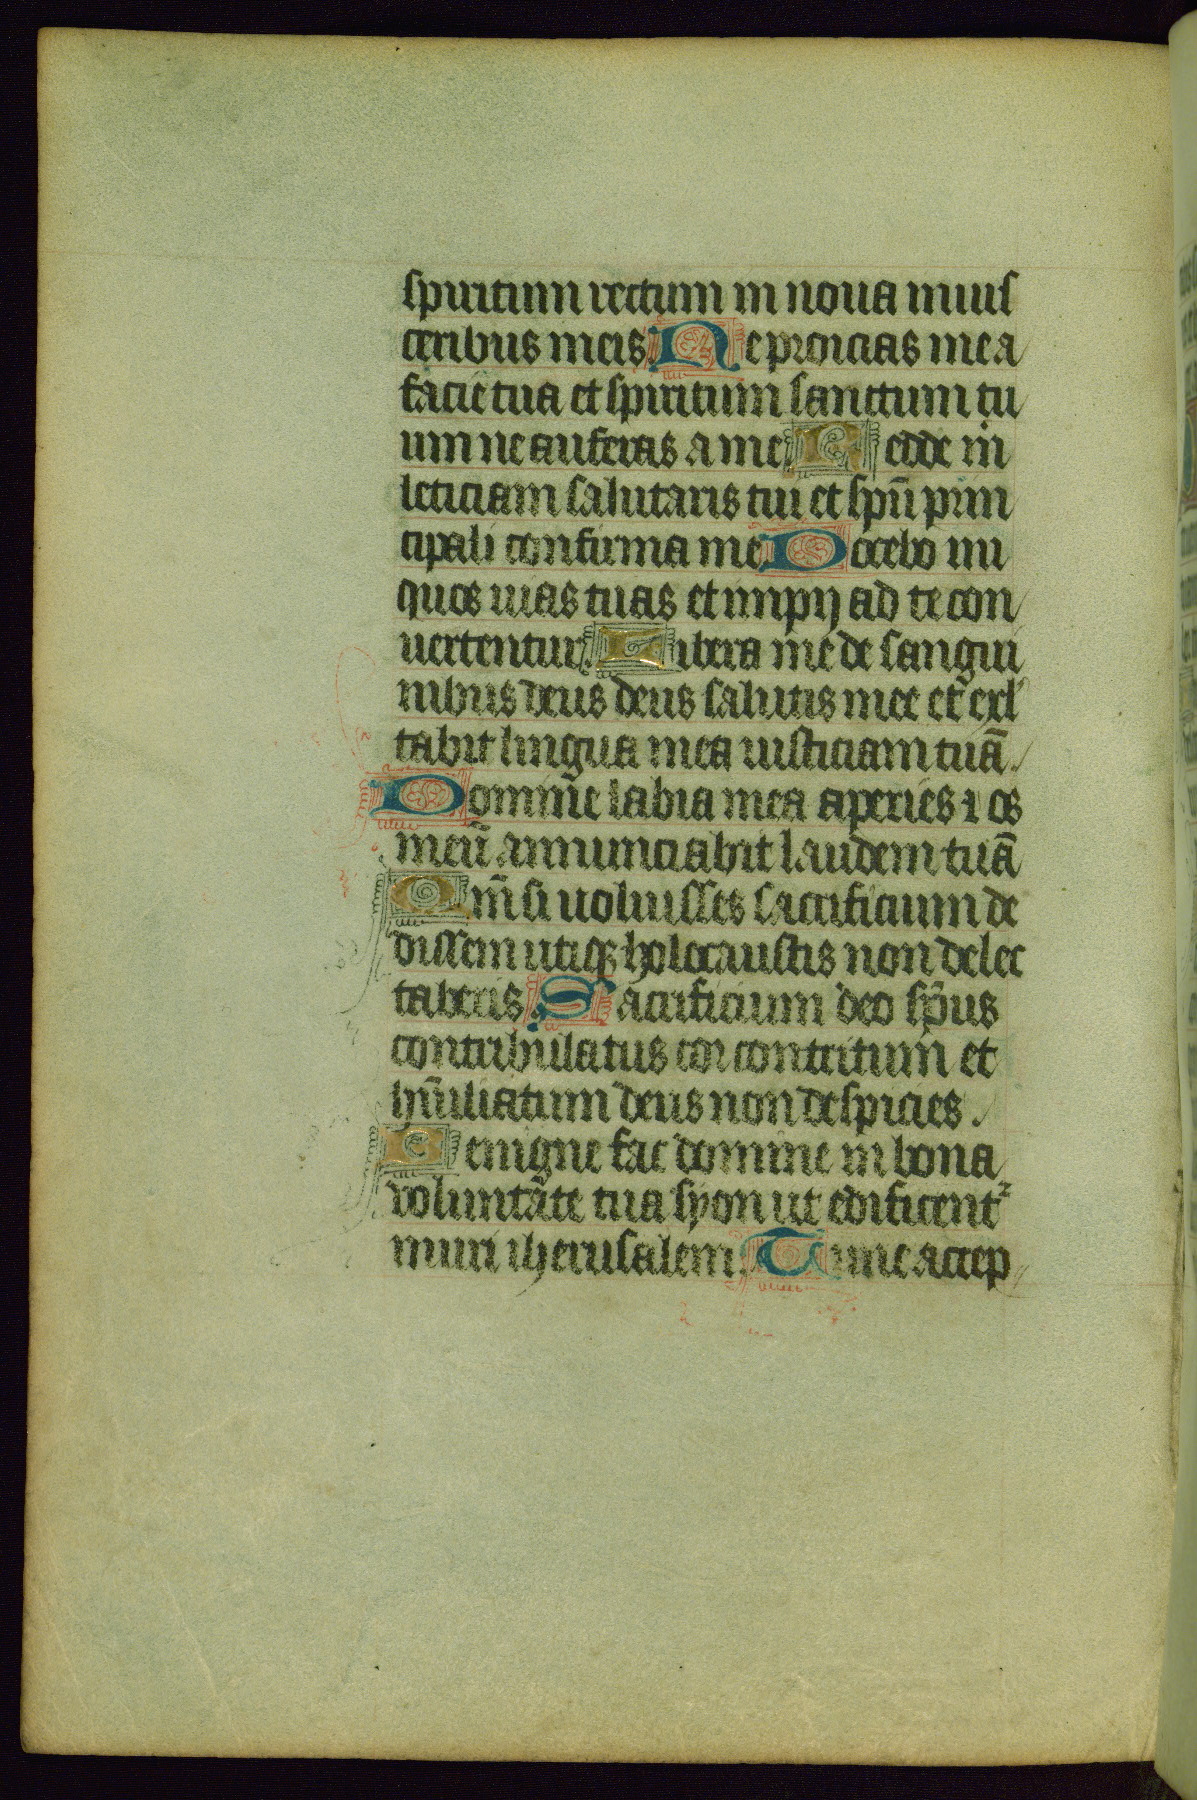 spiritum rectum in noua in uis
ceribus meis. Ne proicias me a
facie tua et spiritum sanctum tu
um ne auferas a me. Redde m̄
leticiam salutaris tui et spū prin
cipali confirma me. Docebo ini
quos uias tuas et impij ad te con
uertentur. Libera me de sangui
nibus deus deus salutis mee et exl
tabit lingua mea iusticiam tuā.
Domine labia mea aperies ⁊ os
meū annunciabit laudem tuā
Qm̄ si uoluisses sacrificium de
dissem utiqꝫ holocaustis non delec
taberis. Sacrificium deo sp̄us
contribulatus cor contritum et
hūiliatum deus non despicies.
Benigne fac domine in bona
voluntate tua syon ut edificent᷑
muri iherusalem. Tunc accep